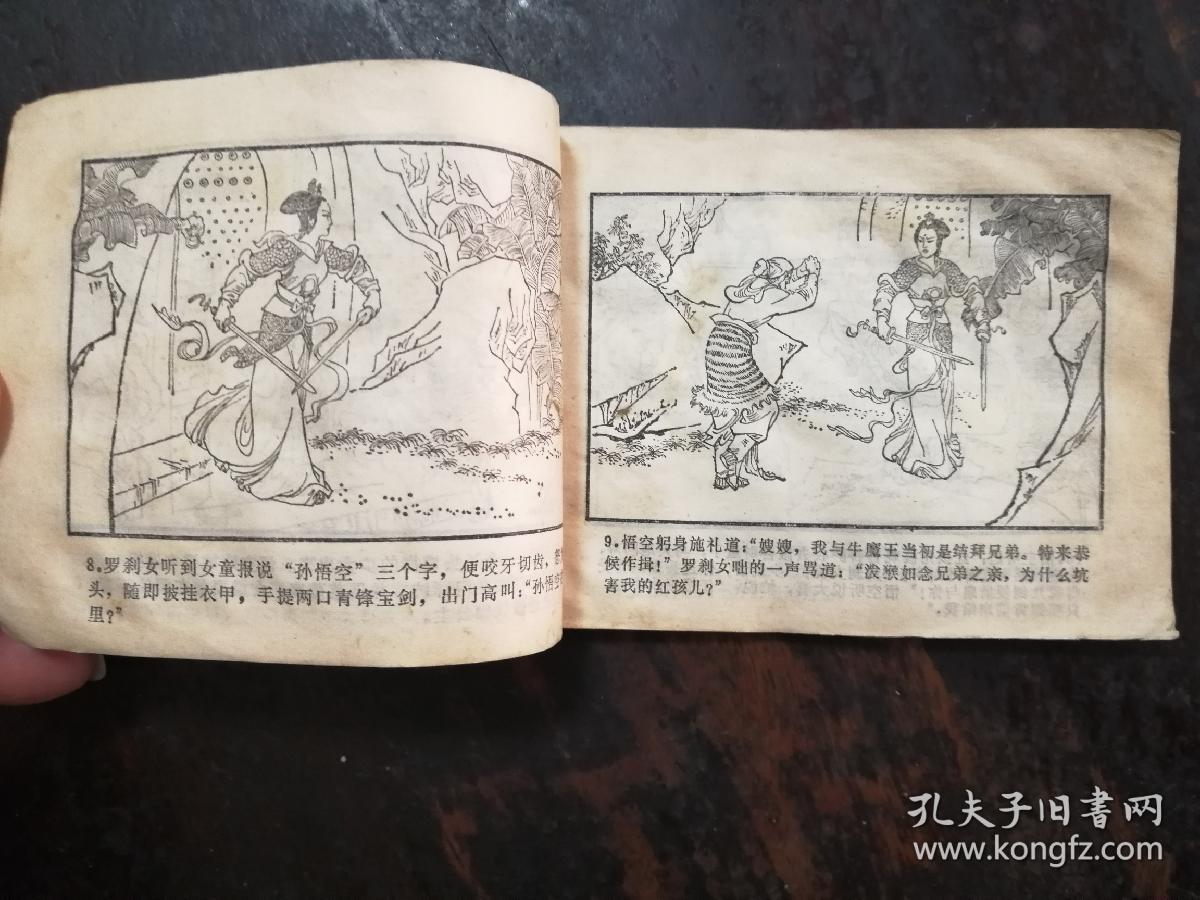 8.罗刹女听到女童报说“孙悟空”三个字，便咬牙切齿，
头，随即披挂衣甲，手提两口青锋宝剑，出门高叫：“孙悟空
里？”
9.悟空躬身施礼道：“嫂嫂，我与牛魔王当初是结拜兄弟。特来恭
候作揖！”罗刹女咄的一声骂道：“泼猴如念兄弟之亲，为什么坑
害我的红孩儿？”
孔夫子旧書网
www.kongfz.com